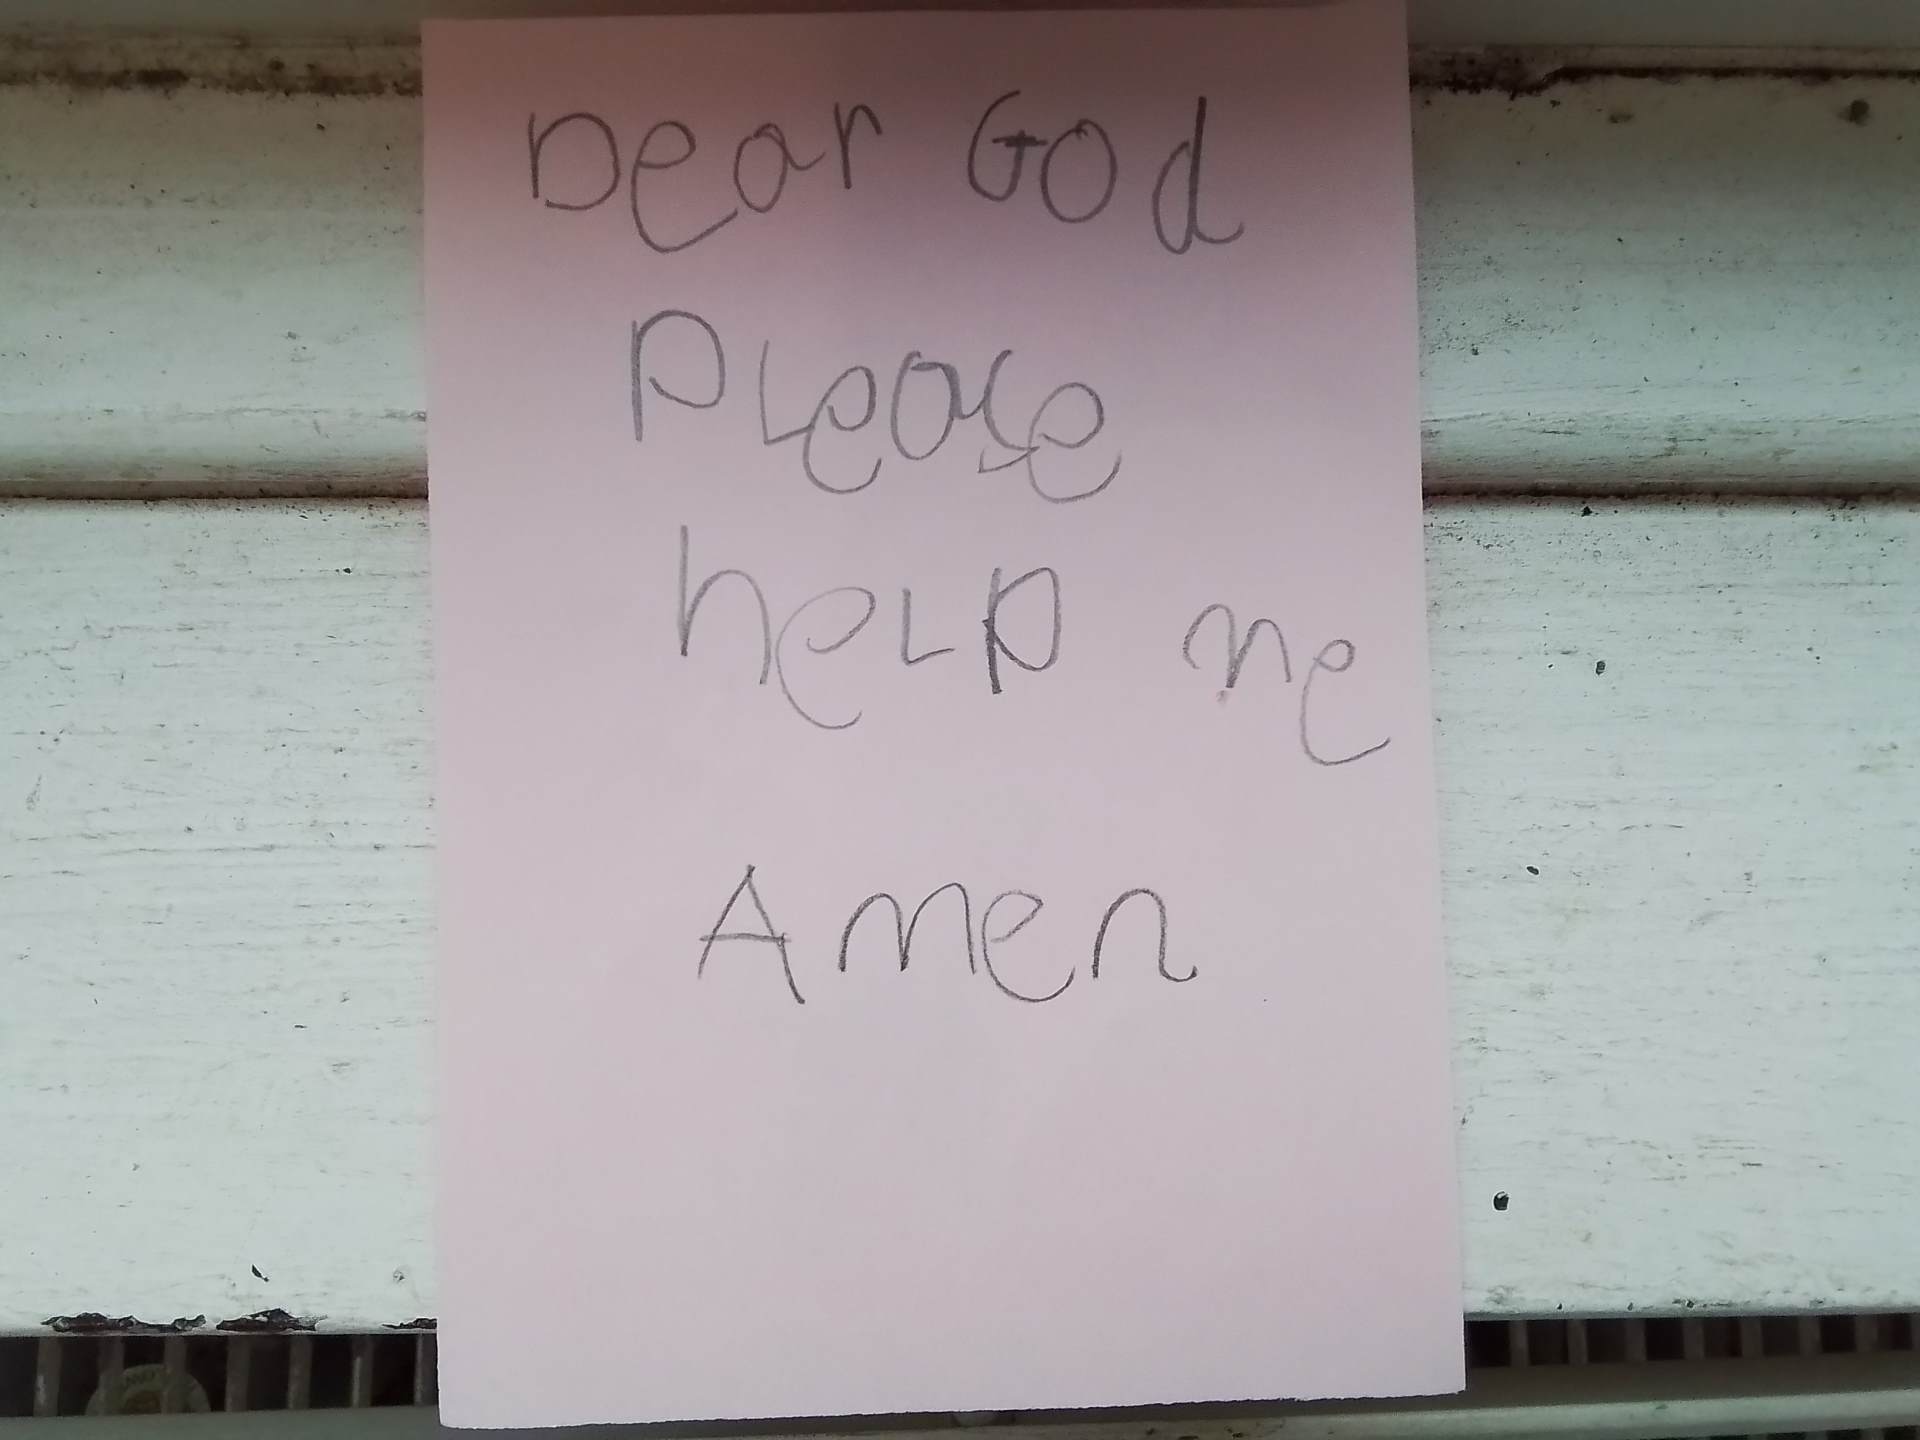 Dear God
Please
help me
Amen